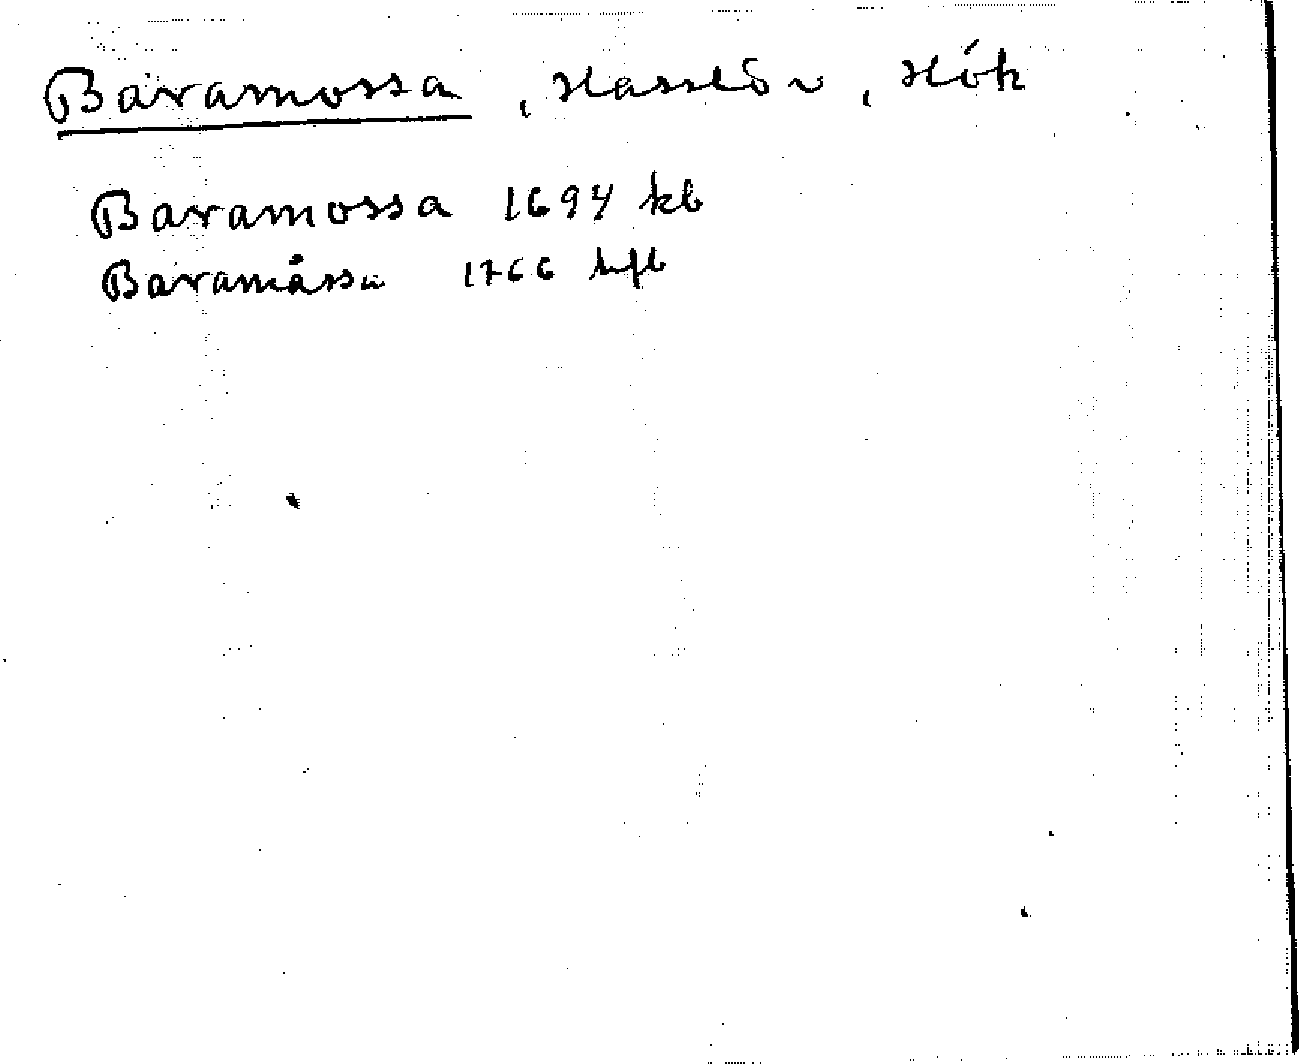 Baramossa, Hasslöv, Hök
Baramossa 1694 kb
Baramåssa 1766 hfb